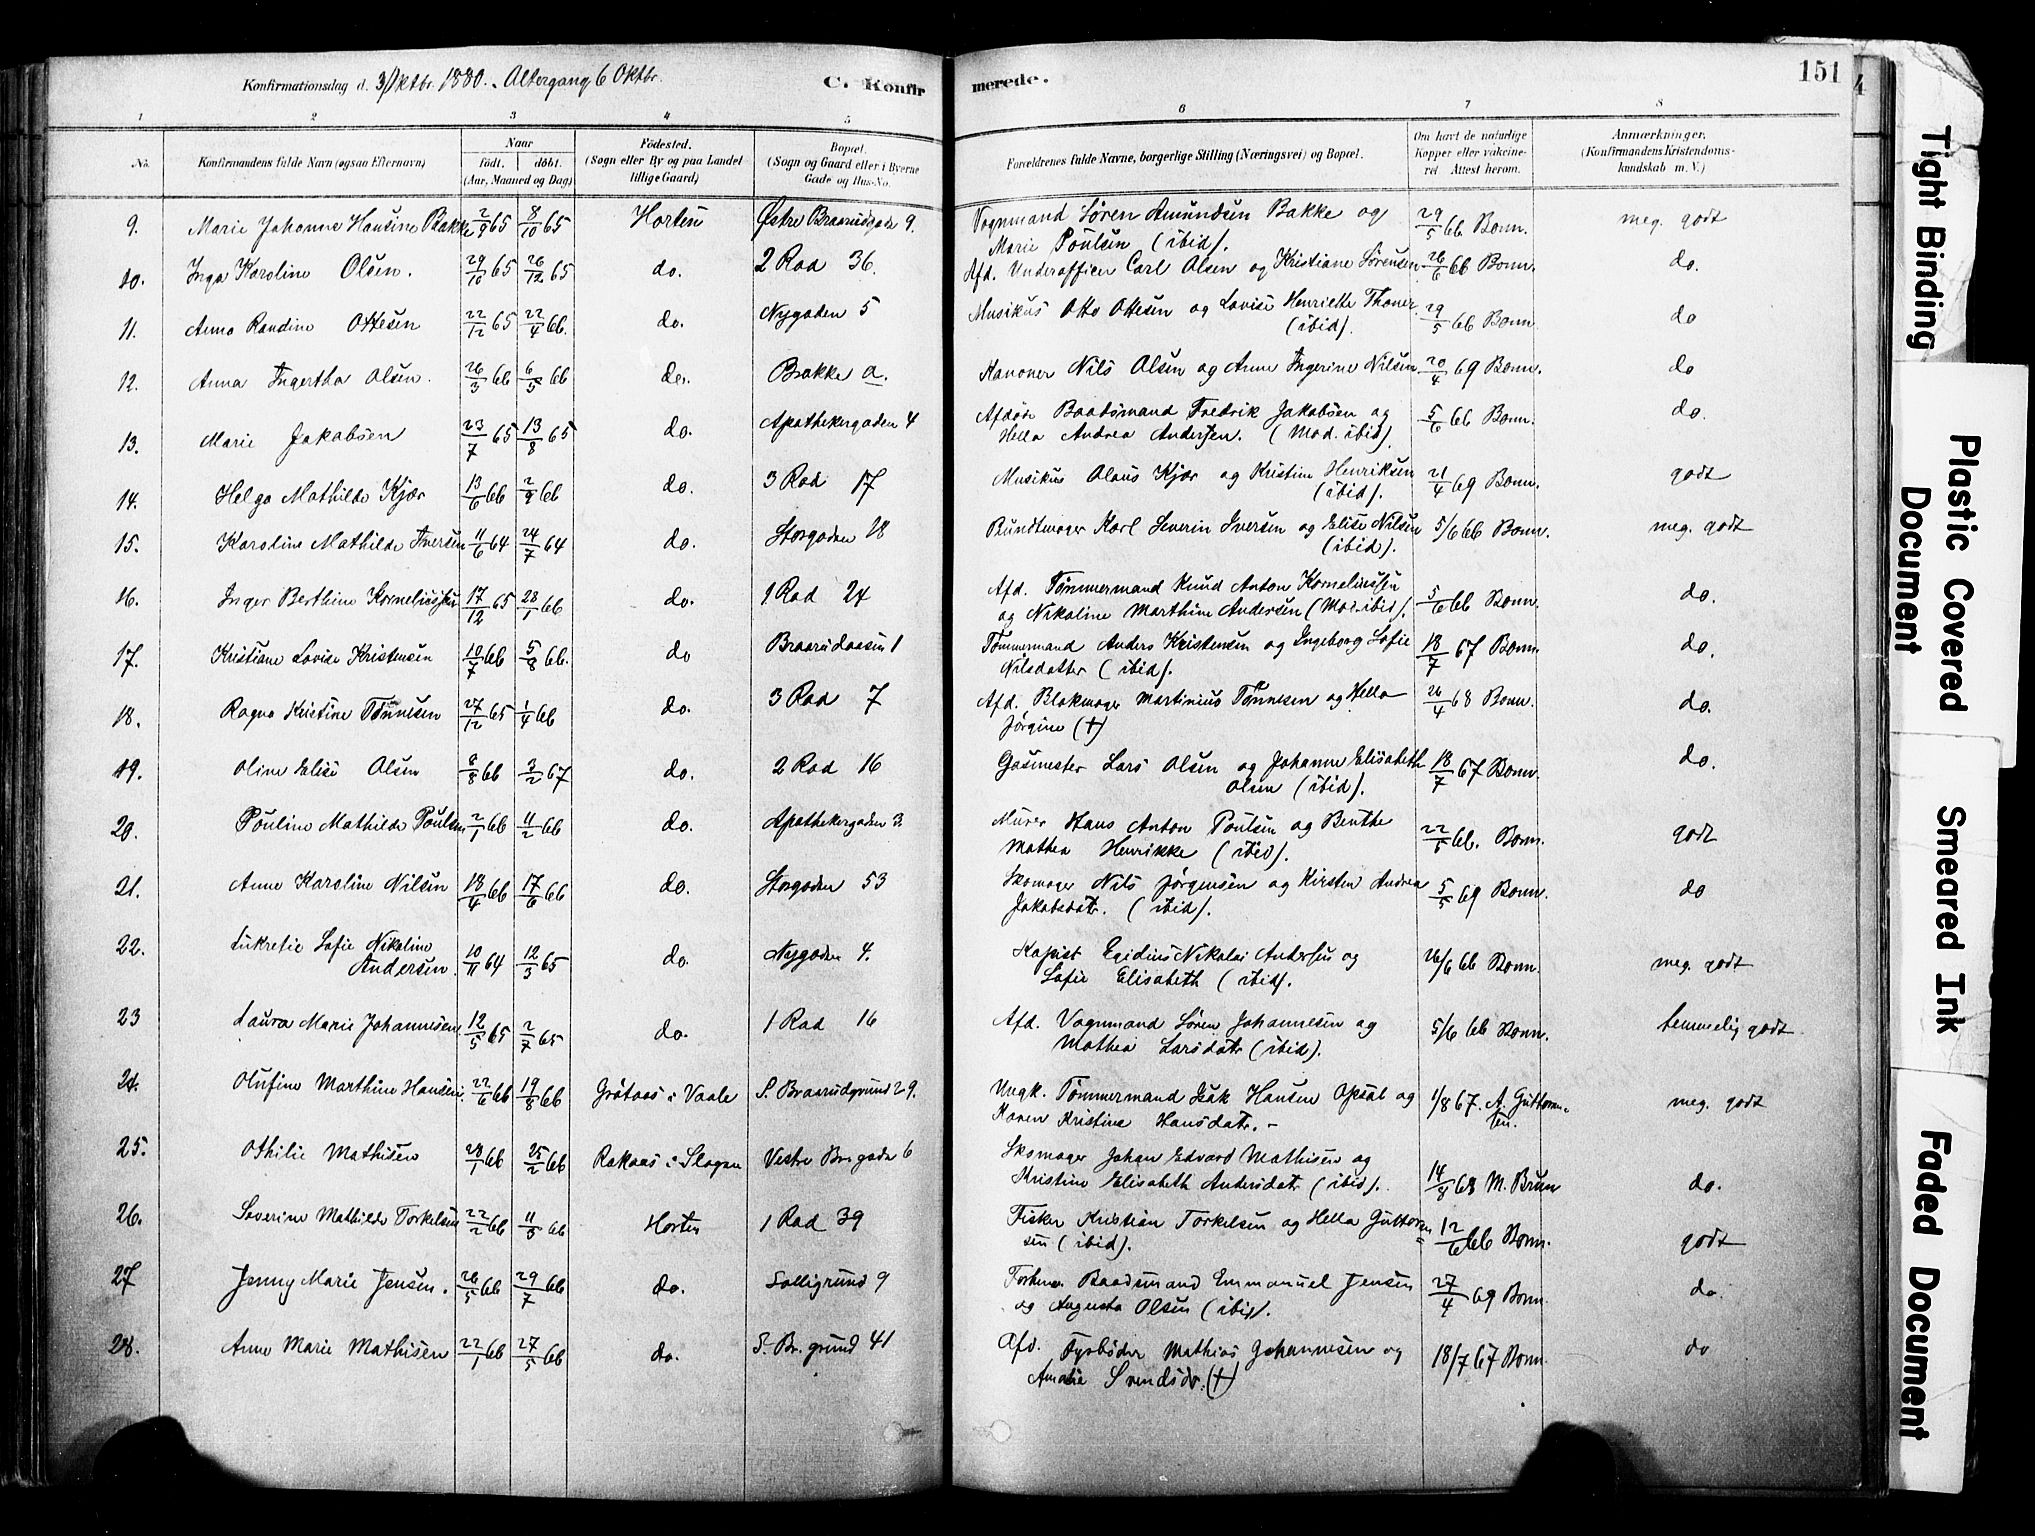 Konfirmationsdag d. 3/Oktbr. 1880. Altergang 6 Oktbr.
C. Konfir
merede.
151
4
1 2 3 4 5 6 7 8
No.
Konfirmandens fulde Navn (ogsaa Efternavn)
Naar
födt. döbt.
(Aar, Maaned og Dag)
Födested.
(Sogn eller By og paa Landet
tillige Gaard)
Bopæl.
(Sogn og Gaard eller i Byerne
Gade og Hus-No.
Forældrenes fulde Navne, borgerlige Stilling (Næringsvei) og Bopæl.
Om havt de naturlige
Kopper eller vakcine-
ret Attest herom.
Anmærkninger.
(Konfirmandens Kristendoms-
kundskab m. V.)
9. Marie Johanne Hansine Bakke 2/9 65 8/10 65 Horten Østre Braarudgade 9. Vognmand Søren Amundsen Bakke og 29/5 66 Bonn. meg. godt
Marie Poulsen (ibid).
10. Inga Karoline Olsen. 29/10 65 26/12 65 do. 2 Rad 36. Afd. Underofficer Carl Olsen og Kristiane Sørensen 26/6 66 Bonn. do.
11. Anna Randine Ottesen 22/12 65 22/4 66. do. Nygaden 5 Musikus Otto Ottesen og Lovise Henriette Thoner 29/5 66 Bonn. do
(ibid).
12. Anna Ingertha Olsen. 26/3 66 6/5 66 do. Brakke a. Kanoner Nils Olsen og Anne Ingerine Nilsen 20/4 69 Bonn. do
13. Marie Jakobsen 23/7 65 13/8 65 do. Apothekergaden 4 Afdøde Baadsmand Fredrik Jakobsen og 5/6 66 Bonn. do.
Hella Andrea Andersen. (Mod. ibid).
14. Helga Mathilde Kjær 13/6 66 2/9 66 do. 3 Rad 17 Musikus Olaus Kjær og Kristine Henriksen 21/4 69 Bonn. godt
(ibid).
15. Karoline Mathilde Iversen 11/6 64 24/7 64 do. Storgaden 18 Bundtmager Karl Severin Iversen og Elise Nilsen 5/6 66 Bonn. meg. godt
(ibid).
16. Inger Berthine Korneliussen 17/12 65 28/1 66 do. 1 Rad 24 Afd. Tømmermand Knud Anton Korneliussen
og Nikoline Marthine Andersen (Mod. ibid). 5/6 66 Bonn. do.
17. Kristiane Lovise Kristensen 10/7 66 5/8 66. do Braarudaasen 1 Tømmermand Anders Kristensen og Ingeborg Sofie 18/7 67 Bonn. do.
Nilsdatter (ibid).
18. Ragna Kristine Tønnesen 27/12 65 1/4 66 do. 3 Rad 7 Afd. Blokmager Martinius Tønnesen og Hella 26/4 68 Bonn. do.
Jørgine (†)
19. Oline Elise Olsen 8/8 66 3/2 67 do. 2 Rad 16 Gasmester Lars Olsen og Johanne Elisabeth 18/7 67 Bonn. do.
Olsen (ibid).
20. Pouline Mathilde Poulsen 2/1 66 11/2 66 do. Apothekergaden 3. Murer Hans Anton Poulsen og Benthe
Mathea Henrikke (ibid). 22/5 66. Bonn. godt
21. Anne Karoline Nilsen 18/4 66 17/6 66 do. Storgaden 53 Skomager Nils Jørgensen og Kirsten Andrea 5/5 69 Bonn. do
Jakobsdatr. (ibid).
22. Lukretie Sofie Nikoline
Andersen. 10/11 64 12/3 65 do. Nygaden 4. Kopist Egidius Nikolai Andersen og 26/6 66 Bonn. meg. godt
Sofie Elisabeth (ibid).
23 Laura Marie Johannesen. 12/5 65 2/7 65 do. 1 Rad 16 Afd. Vognmand Søren Johannesen og 5/6 66 Bonn. temmelig godt
Mathea Larsdatr (ibid).
24. Olufine Marthine Hansen. 22/6 66 19/8 66 Grøtaas i Vaale S. Braarudgrund 29. Ungk. Tømmermand Isak Hansen Opsal og 1/8 67. A. Guttorm- meg. godt
Karen Kristine Hansdatr. - sen.
25. Othilie Mathisen 28/1 66 25/2 66 Rakaas i Slagen Vestre Br. gade 6 Skomager Johan Edvard Mathisen og
Kristine Elisabeth Andersdatr (ibid). 14/4 68 M. Brun do.
26. Severine Mathilde Torkelsen 22/2 66 11/3 66 Horten 1 Rad 39 Fisker Kristian Torkelsen og Hella Guttorm-
sen (ibid). 12/6 66 Bonn. godt
27 Jenny Marie Jensen. 26/5 66 29/7 66 do. Solligrund 9 Forhenv. Baadsmand Emmanuel Jensen 27/4 69 Bonn. do.
og Augusta Olsen (ibid).
28. Anne Marie Mathisen 22/1 66 27/5 66 do. S. Br. grund 41 Afd. Fyrbøder Mathias Johannesen og 18/7 67 Bonn. do
Amalie Svendsdr. (†)
Tight Binding
Plastic Covered
Document
Smeared Ink
Faded Document